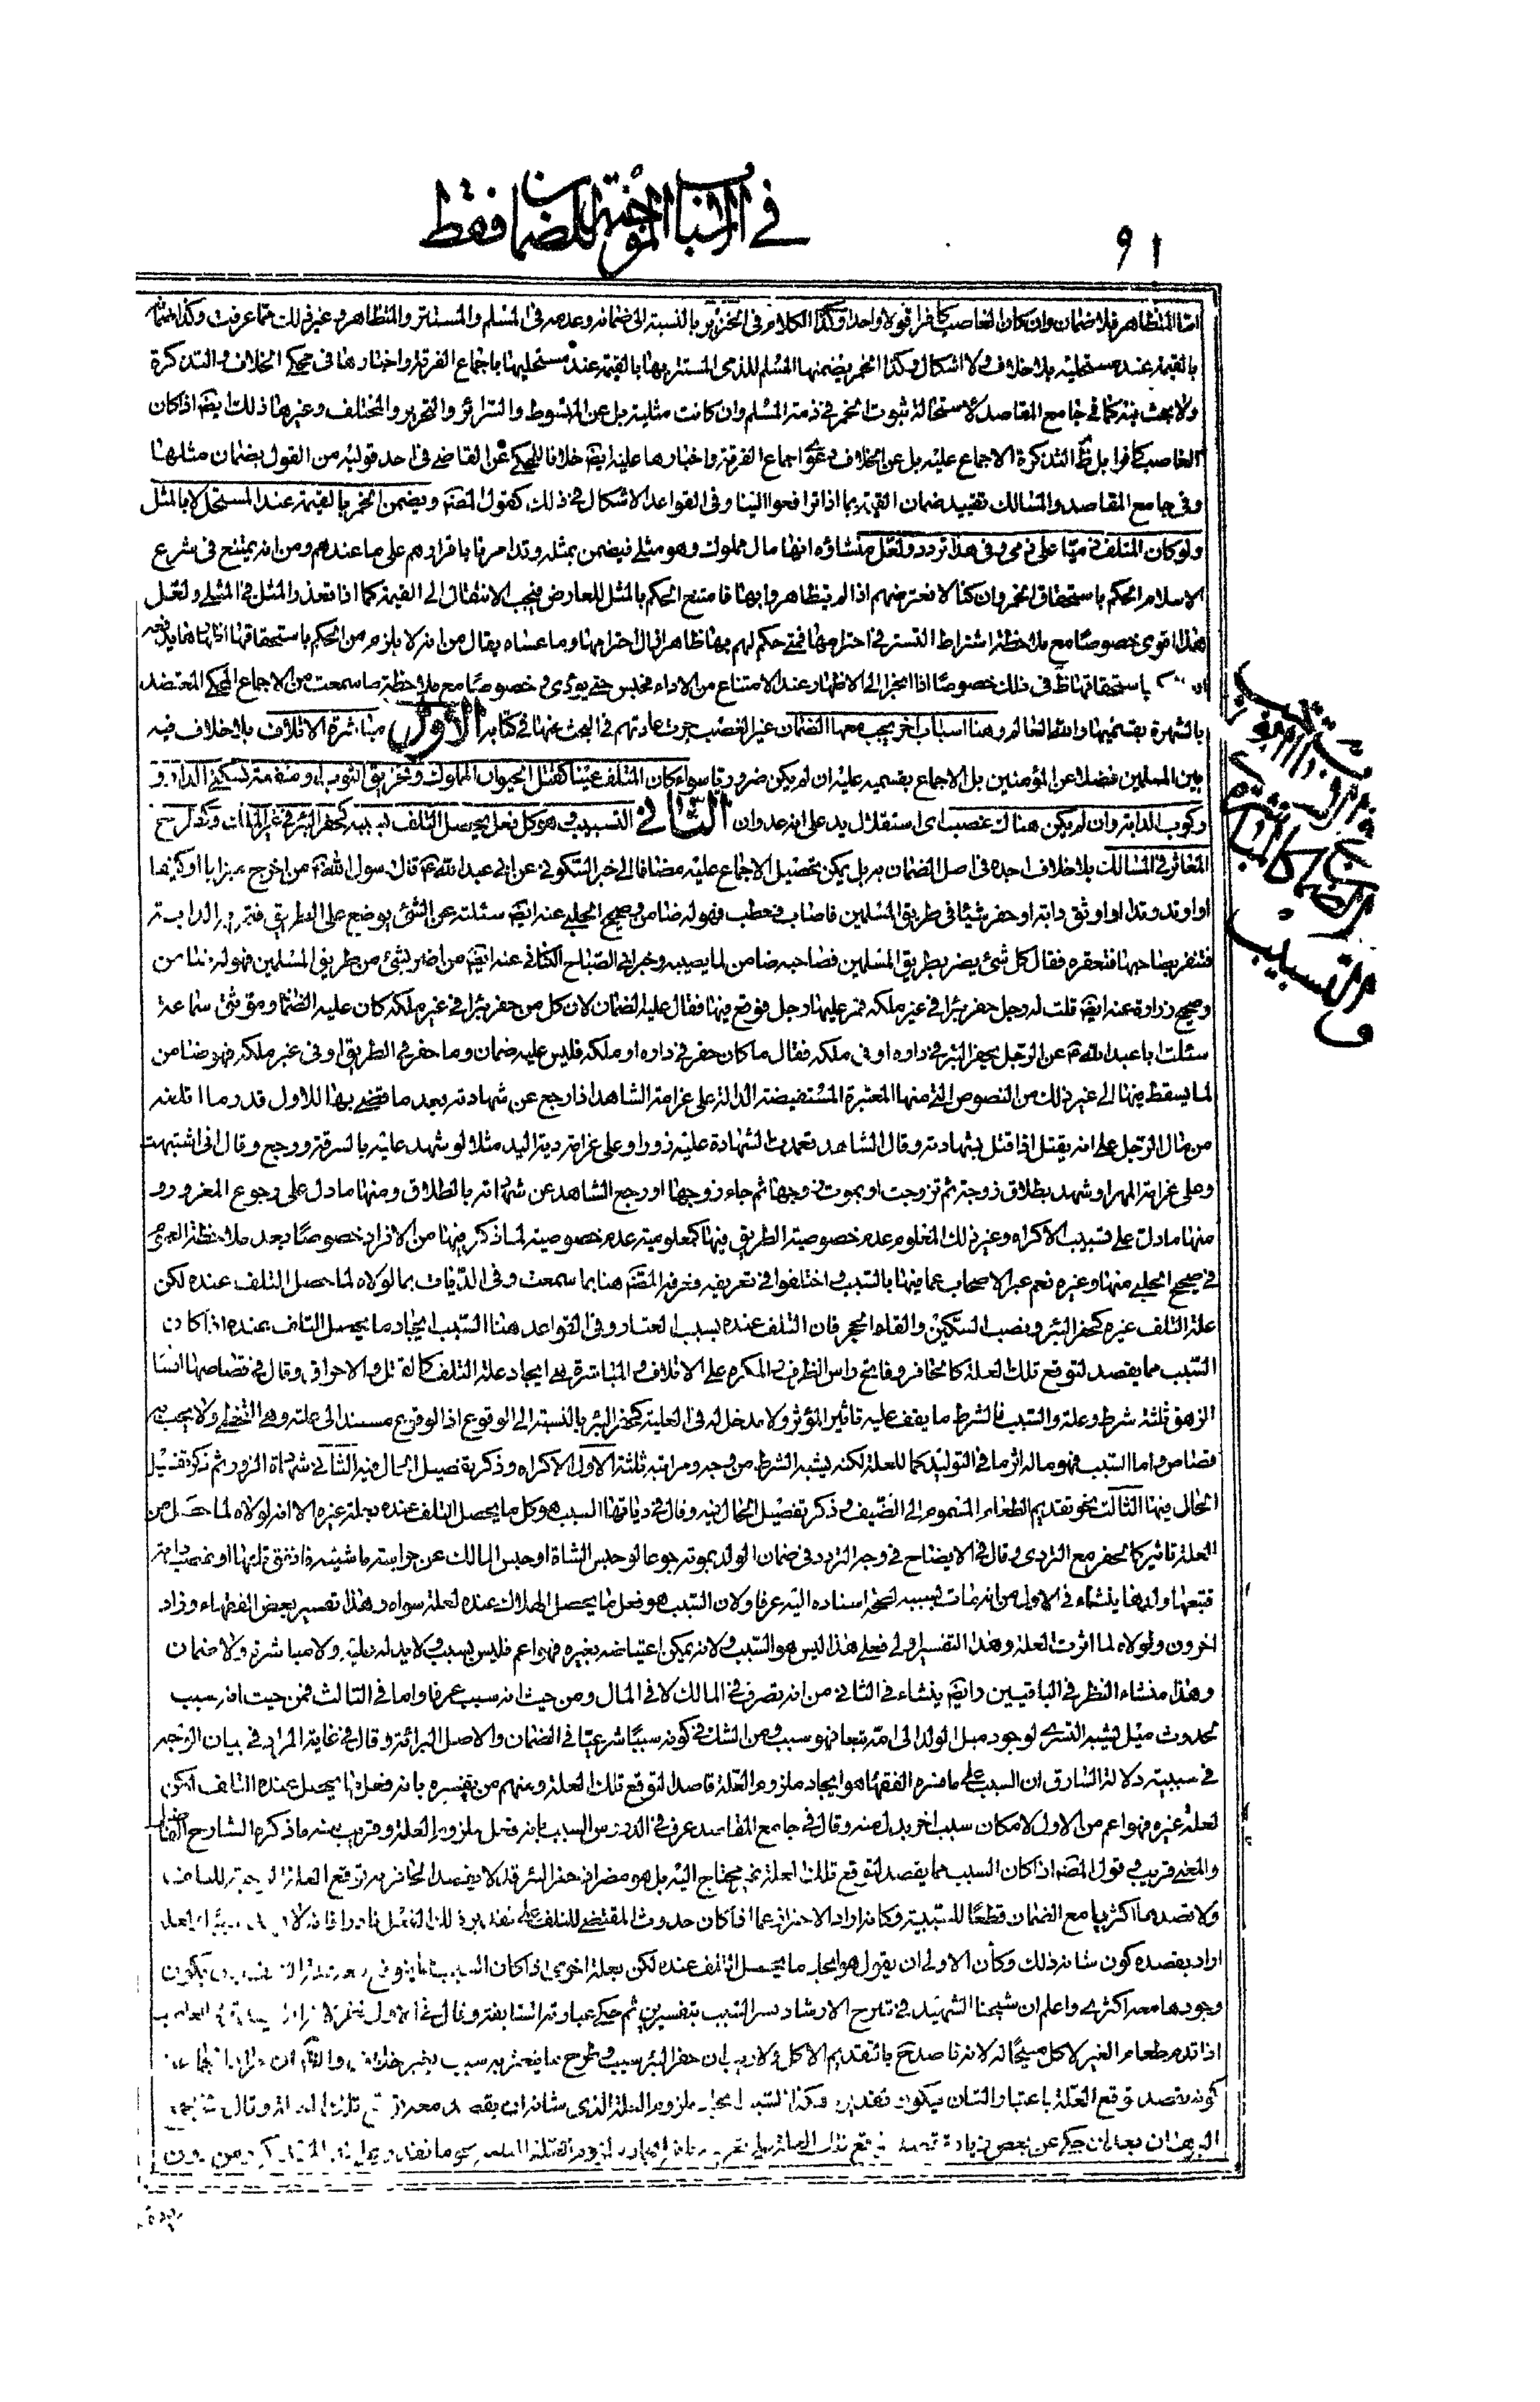 في الاسباب الموجبة للضمان فقط
٩١
اما المتظاهر فلا ضمان وان كان الغاصب كافرا قولا واحدا وكذا الكلام في الخنزير بالنسبة الى ضمانه وعدمه في المسلم والمستتر والمتظاهر وغير ذلك مما عرفت وكذا
بالقيمة عند مستحليه بلا خلاف ولا اشكال وكذا الخمر يضمنها المسلم للذمي المستتر بها بالقيمة عند مستحليها باجماع الفرقة واخبارها في محكي الخلاف والتذكرة
ولا بحث فيه كما في جامع المقاصد لاستحالة ثبوت الخمر في ذمة المسلم وان كانت مثلية بل عن المبسوط والسرائر والتحرير والمختلف وغيرها ذلك ايضا اذا كان
الغاصب كافرا بل ظ التذكرة الاجماع عليه بل عن الخلاف دعوى اجماع الفرقة واخبارها عليه ايضا خلافا للمحكي عن القاضي في احد قوليه من القول بضمان مثلها
وفي جامع المقاصد والمسالك تقييد ضمان القيمة بما اذا ترافعوا الينا وفي القواعد الاشكال في ذلك كقول المصنف ويضمن الخمر بالقيمة عند المستحل لا بالمثل
ولو كان المتلف ذميا على ذمي وفي هذا تردد ولعل منشاؤه انها مال مملوك وهو مثلي فيضمن بمثله وقد امرنا باقرارهم على ما عندهم ومن انه يمتنع في شرع
الاسلام الحكم باستحقاق الخمر وان كنا لا نعترضهم اذا لم يتظاهروا بها فامتنع الحكم بالمثل للعارض فيجب الانتقال الى القيمة كما اذا تعذر المثل في المثلي ولعل
هذا اقوى خصوصا مع ملاحظة اشتراط التستر في احترامها فمتى حكم لهم بها ظاهرا زال احترامها وما عساه يقال من انه لا يلزم من الحكم باستحقاقها يدفعه
باستحقاقها ظ في ذلك خصوصا اذا انجر الى الاظهار عند الامتناع من الاداء فيحبس حتى يؤدي خصوصا مع ملاحظة ما سمعت من الاجماع المحكي المعتضد
بالشهرة بقسميها والله العالم وهنا اسباب اخر يجب معها الضمان غير الغصب جرت عادتهم في البحث عنها في كتابه الاول مباشرة الاتلاف بلا خلاف فيه
بين المسلمين فضلا عن المؤمنين بل الاجماع بقسميه عليه ان لم يكن ضروريا سواء كان المتلف عينا كقتل الحيوان المملوك وتخريق الثوب او منفعة كسكنى الدار و
وركوب الدابة وان لم يكن هناك غصب اي استقلال يد على انه عدوان الثاني التسبيب وهو كل فعل يحصل التلف بسببه كحفر البئر في غير الملك وكطرح
المعاثر في المسالك بلا خلاف اجده في اصل الضمان به بل يمكن تحصيل الاجماع عليه مضافا الى خبر السكوني عن ابي عبد الله ع قال رسول الله ص من اخرج ميزابا او كنيفا
او اوتد وتدا او اوثق دابة او حفر شيئا في طريق المسلمين فاصاب فعطب فهو له ضامن وصحيح الحلبي عنه ايضا سئلته عن الشئ يوضع على الطريق فتمر به الدابة
فتنفر بصاحبها فتعقره فقال كل شئ يضر بطريق المسلمين فصاحبه ضامن لما يصيبه وخبر ابي الصباح الكناني عنه ايضا من اضر بشئ من طريق المسلمين فهو له ضامن
وصحيح زرارة عنه ايضا قلت له رجل حفر بئرا في غير ملكه فمر عليها رجل فوقع فيها فقال عليه الضمان لان كل من حفر بئرا في غير ملكه كان عليه الضمان وموثق سماعة
سئلت ابا عبد الله ع عن الرجل يحفر البئر في داره او في ملكه فقال ما كان حفر في داره او ملكه فليس عليه ضمان وما حفر في الطريق او في غير ملكه فهو ضامن
لما يسقط فيها الى غير ذلك من النصوص التي منها المعتبرة المستفيضة الدالة على غرامة الشاهد اذا رجع عن شهادته بعد ما قضي بها للاول قدر ما اتلفه
من مال الرجل على انه يقتل اذا قتل بشهادته وقال الشاهد تعمدت الشهادة عليه زورا وعلى غرامة دية اليد مثلا لو شهد عليه بالسرقة ورجع وقال اني اشتبهت
وعلى غرامة المهر لو شهد بطلاق زوجة ثم تزوجت او بموت زوجها ثم جاء زوجها او رجع الشاهد عن شهادته بالطلاق ومنها ما دل على رجوع المغرور و
منها ما دلت على تسبيب الاكراه وغير ذلك المعلوم عدم خصوصية الطريق فيها كمعلومية عدم خصوصية لما ذكر فيها من الافراد خصوصا بعد ملاحظة العموم
في صحيح الحلبي منها وغيره نعم عبر الاصحاب عما فيها بالتسبيب واختلفوا في تعريفه فعرفه المصنف هنا بما سمعت وفي الديات بما لولاه لما حصل التلف عنده لكن
علة التلف غيره كحفر البئر ونصب السكين والقاء الحجر فان التلف عنده بسبب العثار وفي القواعد هنا السبب ايجاد ما يحصل التلف عنده اذا كان
السبب مما يقصد لتوقع تلك العلة كالحافر وفاتح راس الظرف والمكره على الاتلاف والمباشرة هي ايجاد علة التلف كالقتل والاحراق وقال في قصاصها اسباب
الزهوق ثلثة شرط وعلة والسبب فالشرط ما يقف عليه تاثير المؤثر ولا مدخل له في العلية كحفر البئر بالنسبة الى الوقوع اذ الوقوع مستند الى علته وهي التخطي ولا يجب فيه
قصاص واما السبب فهو ما له اثر ما في التوليد كما للعلة لكنه يشبه الشرط من وجه ومراتبه ثلثة الاول الاكراه وذكر تفصيل الحال فيه الثاني شهادة الزور ثم ذكر تفصيل
الحال فيها الثالث نحو تقديم الطعام المسموم الى الضيف وذكر تفصيل الحال فيه وقال في دياتها السبب هو كل ما يحصل التلف عنده بعلة غيره الا انه لولاه لما حصل من
العلة تاثير كالحفر مع التردي وقال في الايضاح في وجه التردد في ضمان الولد بموته جوعا لو حبس الشاة او حبس المالك عن حراسة ماشيته فاتفق تلفها او غصب دابة
فتبعها ولدها ينشاء في الاول من انه مات بسببه لصحة اسناده اليه عرفا ولان السبب هو فعل ما يحصل الهلاك عنده لعلة سواه وهذا تفسير بعض الفقهاء وزاد
اخرون ولولاه لما اثرت العلة وهذا التفسير اولى فعلى هذا ليس هو السبب ولانه يمكن اعتياضه بغيره فهو اعم فليس بسبب ولا يد له عليه ولا مباشرة ولا ضمان
وهذا منشاء النظر في الباقيين وايضا ينشاء في الثاني من انه تصرف في المالك لا في المال ومن حيث انه سبب عرفا واما في الثالث فمن حيث انه سبب
لحدوث ميل يشبه القسري لوجود ميل الولد الى امه تبعا فهو سبب ومن الشك في كونه سببا شرعيا في الضمان والاصل البرائة وقال في غاية المراد في بيان الوجه
في سببية دلالة السارق ان السبب على ما فسره الفقهاء هو ايجاد ملزوم العلة قاصدا لتوقع تلك العلة ومنهم من يفسره بانه فعل ما يحصل عنده التلف لكن
لعلة غيره فهو اعم من الاول لامكان سبب اخر بدل منه وقال في جامع المقاصد عرف في الدروس السبب بانه فعل ملزوم العلة وقريب منه ما ذكره الشارح الفاضل
والمعنى قريب وقول المصنف اذا كان السبب مما يقصد لتوقع تلك العلة غير محتاج اليه بل هو مضر اذ حفر البئر قد لا يقصد الحافر به توقع العلة الموجبة للتلف
ولا قصدها اكثريا مع الضمان قطعا للسببية وكانه اراد الاحتراز عما اذا كان حدوث المقتضي للتلف على تقدير ذلك الفعل نادرا فانه لا
اراد بقصده كون شانه ذلك وكان الاولى ان يقول هو ايجاد ما يحصل التلف عنده لكن بعلة اخرى اذا كان السبب
وجودها معه اكثري واعلم ان شيخنا الشهيد في شرح الارشاد فسر السبب بتفسيرين ثم حكى عبارته السابقة وقال في الاول
اذا قدم طعام الغير لاكل مبيحا له لانه قاصد بالتقديم الاكل ولا ريب ان حفر البئر سبب وطرح ما يتعثر به سبب بغير خلاف
كونه يقصد توقع العلة باعتبار الشان وكذا السبب ملزوم العلة الذي شانه ان يقصد معه توقع تلك العلة وقال

في الضمان بالمباشرة
والتسبيب